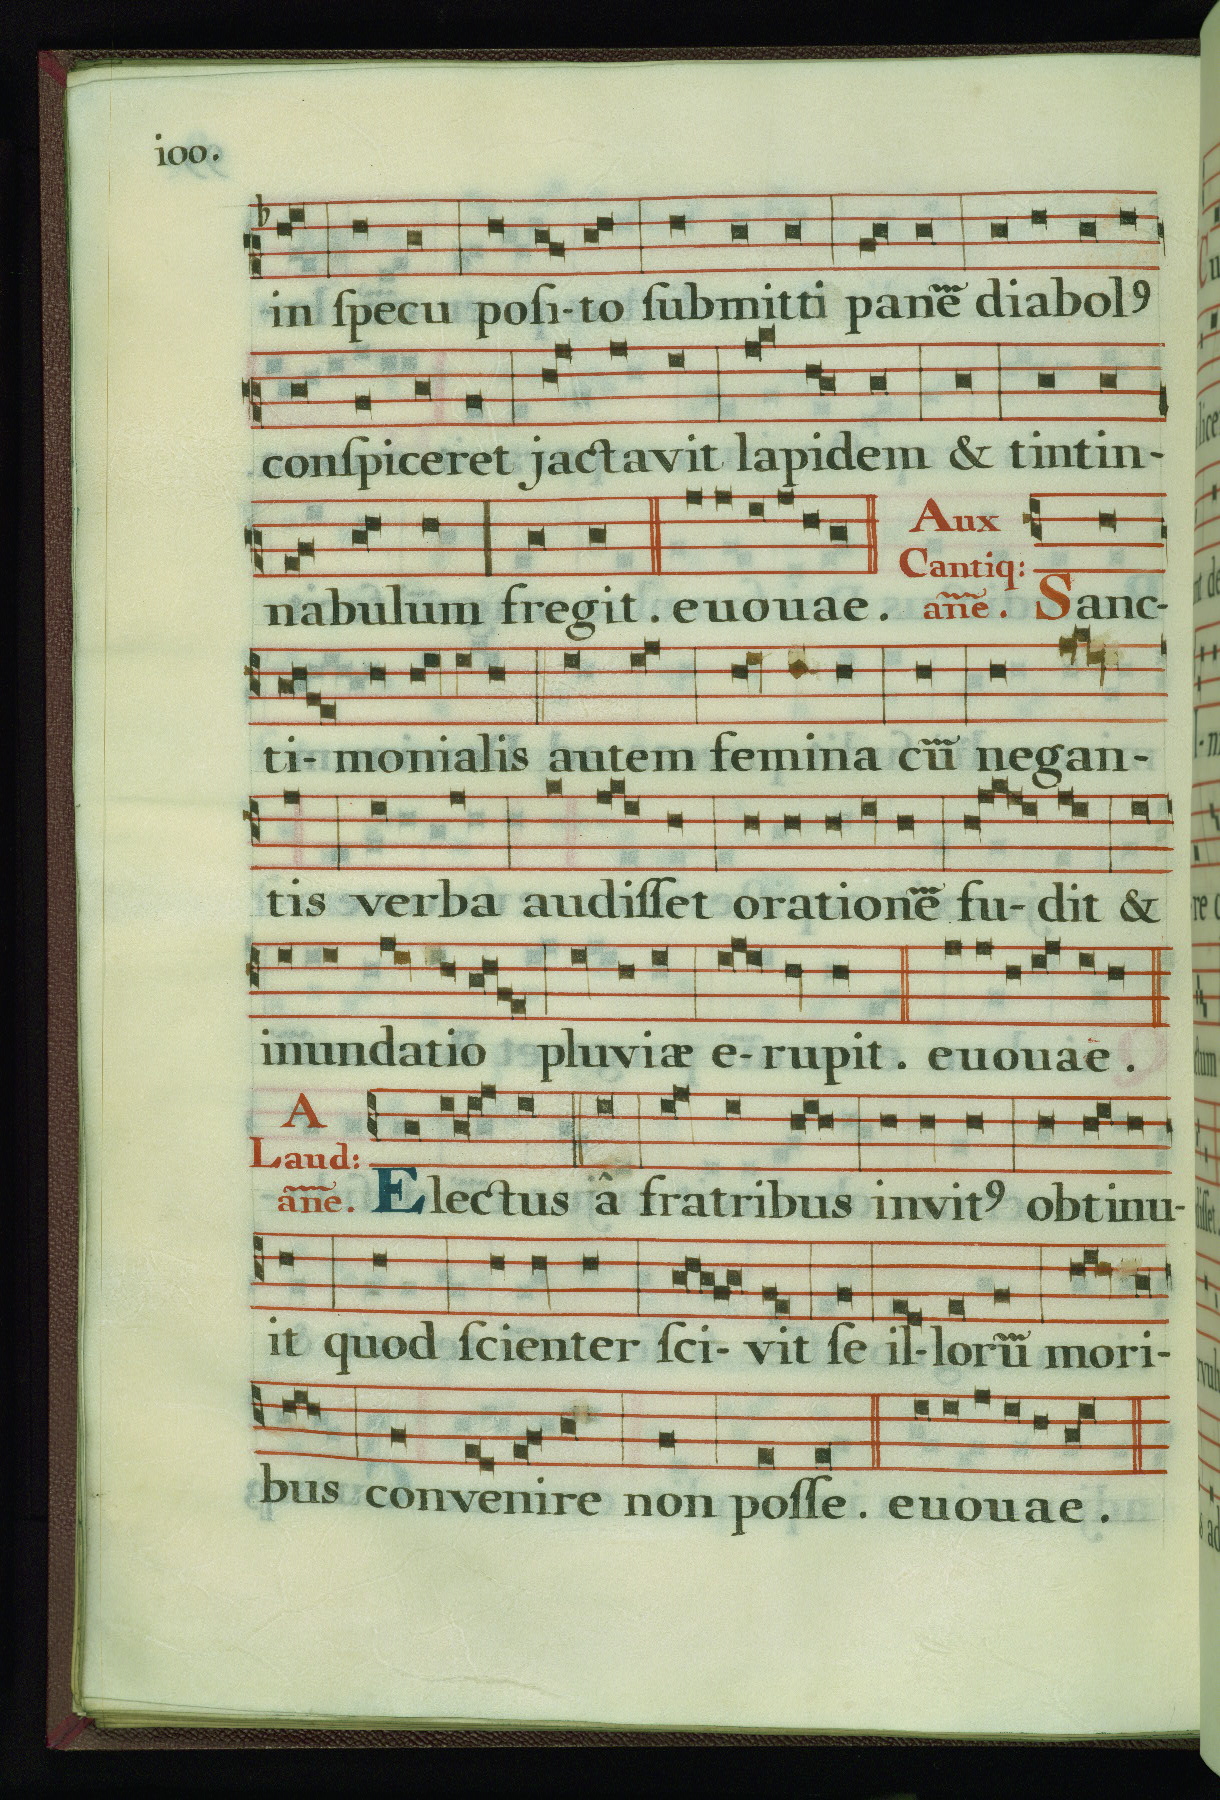 ioo.
in ſpecu poſi-to ſubmitti panẽ diabolꝰ
conſpiceret jactavit lapidem & tintin-
Aux
Cantiq:
nabulum fregit . euouae . añe . Sanc-
ti-monialis autem femina cũ negan-
tis verba audiſſet orationẽ fu-dit &
inundatio pluviæ e-rupit . euouae .
A
Laud:
añe. Electus â fratribus invitꝰ obtinu-
it quod ſcienter ſci-vit ſe il-lorũ mori-
bus convenire non poſſe . euouae .